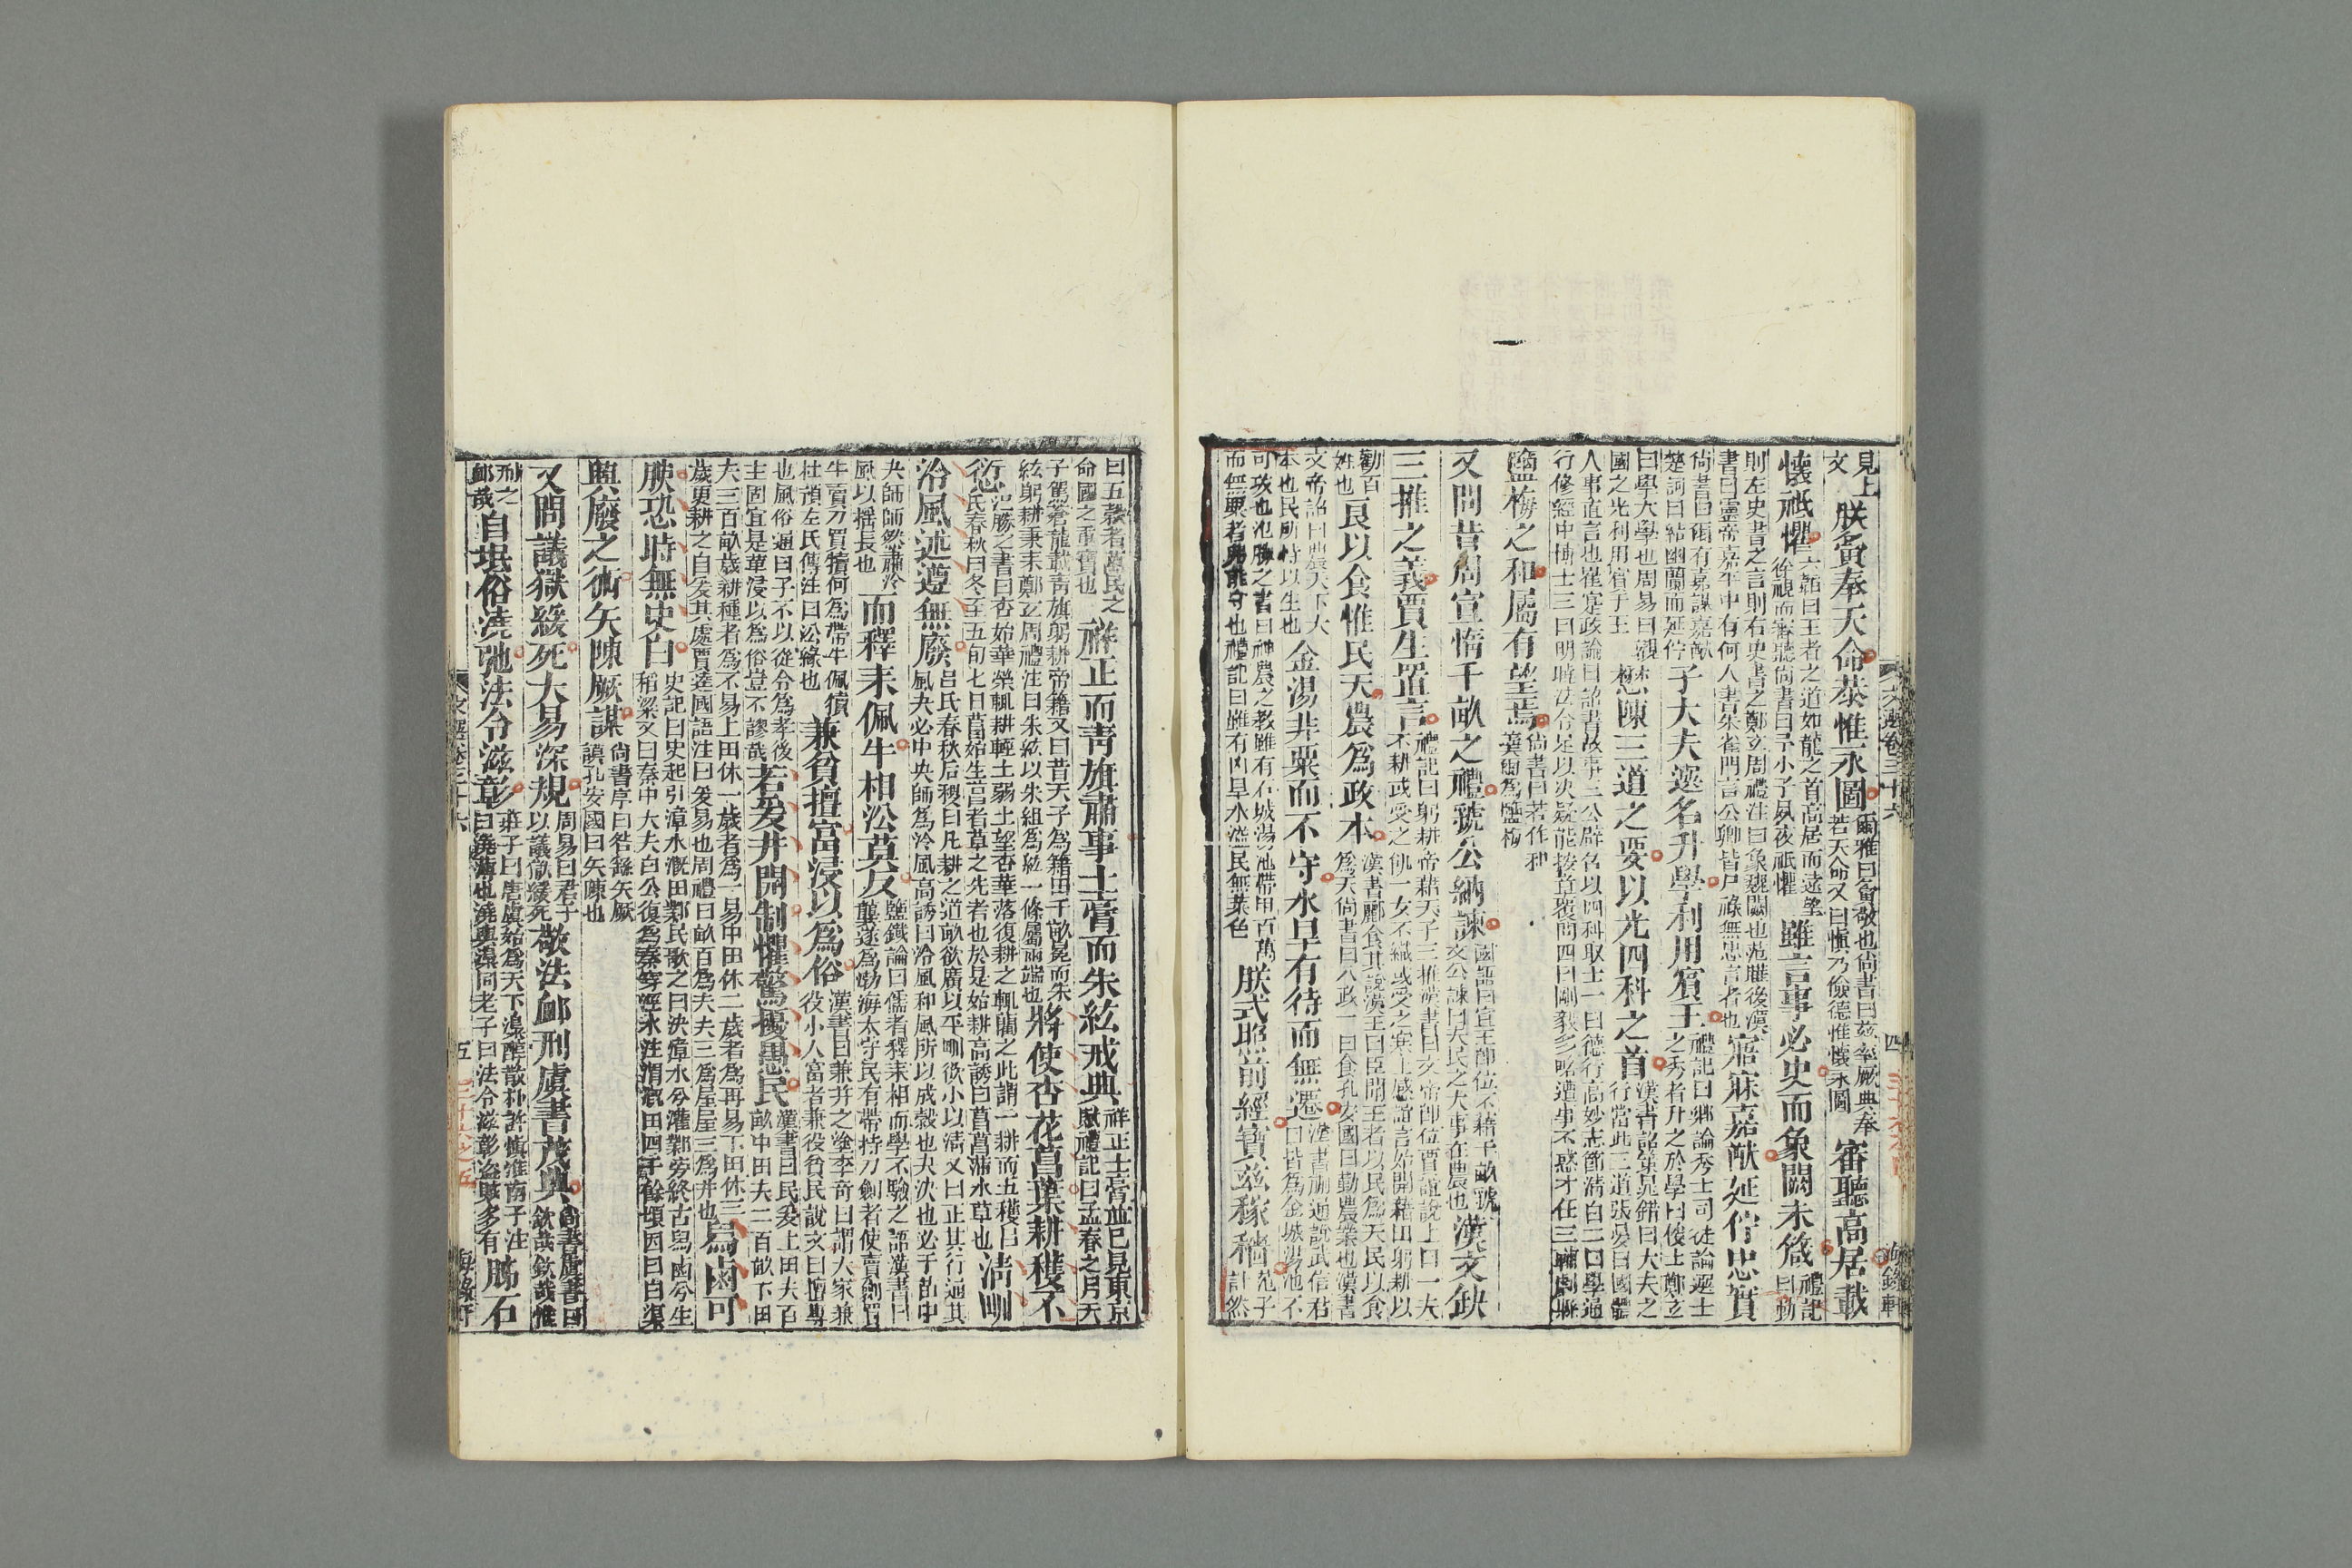 文選卷三十六 四 海錄軒
見上
文
朕夤奉天命恭惟永圖
爾雅曰夤敬也尚書曰兹率厥典奉
若天命又曰慎乃儉德惟懷永圖
審聽高居載
懷祗懼
六韜曰王者之道如龍之首高居而遠望
徐視而審聽尚書曰予小子夙夜祗懼
雖言事必史而象闕未箴
禮記
曰動
則左史書之言則右史書之鄭玄周禮注曰象魏闕也范曄後漢
書曰靈帝嘉平中有何人書朱雀門言公卿皆尸祿無忠言者也
寤寐嘉猷延佇忠實
尚書曰爾有嘉謀嘉猷
楚詞曰結幽蘭而延佇
子大夫選名升學利用賓王
禮記曰鄉論秀士司徒論選士
之秀者升之於學曰俊士鄭玄
曰學大學也周易曰觀
國之光利用賓于王
懋陳三道之要以光四科之首
漢書詔策晁錯曰大夫之
行當此三道張晏曰國體
人事直言也崔寔政論曰詔書故事三公辟召以四科取士一曰德行高妙志節清白二曰學通
行修經中博士三曰明曉法令足以決疑能按章覆問四曰剛毅多略遭事不惑才任三輔劇縣
鹽梅之和屬有望焉
尚書曰若作和
羹爾為鹽梅
又問昔周宣惰千畝之禮虢公納諫
國語曰宣王即位不籍千畝虢
文公諫曰夫民之大事在農也
漢文缺
三推之義賈生置言
禮記曰躬耕帝藉天子三推漢書曰文帝即位賈誼說上曰一夫
不耕或受之飢一女不織或受之寒上感誼言始開籍田躬耕以
勸百
姓也
良以食惟民天農為政本
漢書酈食其說漢王曰臣聞王者以民為天民以食
為天尚書曰八政一曰食孔安國曰勸農業也漢書
文帝詔曰農天下大
本也民所恃以生也
金湯非粟而不守水旱有待而無遷
漢書蒯通說武信君
曰皆為金城湯池不
可攻也氾勝之書曰神農之教雖有石城湯池帶甲百萬
而無粟者弗能守也禮記曰雖有凶旱水溢民無菜色
朕式照前經寶兹稼穡
范子
計然
曰五穀者萬民之
命國之重寶也
祥正而青旗肅事土膏而朱紘戒典
祥正土膏並已見東京
賦禮記曰孟春之月天
子駕蒼龍載青旗躬耕帝籍又曰昔天子為籍田千畝冕而朱
紘躬耕秉耒鄭玄周禮注曰朱紘以朱組為紘一條屬兩端也
將使杏花菖葉耕穫不
愆
氾勝之書曰杏始華榮輒耕輕土弱土望杏華落復耕之輒藺之此謂一耕而五穫呂
氏春秋曰冬至五旬七日菖始生菖者草之先者也於是始耕高誘曰菖菖蒲水草也
清甽
泠風述遵無廢
呂氏春秋后稷曰凡耕之道畝欲廣以平甽欲小以清又曰正其行通其
風夬必中央師為泠風高誘曰泠風和風所以成穀也夬決也必于苗中
央師師然肅泠
風以搖長也
而釋耒佩牛相沿莫反
鹽鐵論曰儒者釋耒相而學不驗之語漢書曰
龔遂為勃海太守民有帶持刀劍者使賣劍買
牛賣刀買犢何為帶牛佩犢
杜預左氏傳注曰沿緣也
兼貧擅富浸以為俗
漢書曰兼并之塗李奇曰謂大家兼
役小人富者兼役貧民說文曰擅專
也風俗通曰子不以從令為孝後
主固宜是革浸以為俗豈不謬哉
若爰井開制懼驚擾愚民
漢書曰民爰上田夫百
畝中田夫二百畝下田
夫三百畝歲耕種者為不易上田休一歲者為一易中田休二歲者為再易下田休三
歲更耕之自爰其處賈逵國語注曰爰易也周禮曰畝百為夫夫三為屋屋三為井也
舄鹵可
腴恐時無史白
史記曰史起引漳水溉田鄴民歌之曰決漳水兮灌鄴旁終古舄鹵兮生
稻粱又曰秦中大夫白公復為秦穿涇水注渭溉田四千餘頃因曰白渠
興廢之術矢陳厥謀
尚書序曰咎繇矢厥
謨孔安國曰矢陳也
又問議獄緩死大易深規
周易曰君子
以議獄緩死
敬法卹刑虞書茂典
尚書虞書曰
欽哉欽哉惟
刑之
卹哉
自氓俗澆弛法令滋彰
莊子曰唐虞始為天下澆醇散朴許慎淮南子注
曰澆薄也澆與澆同老子曰法令滋彰盜賊多有
肺石
文選卷三十六 五 海錄軒